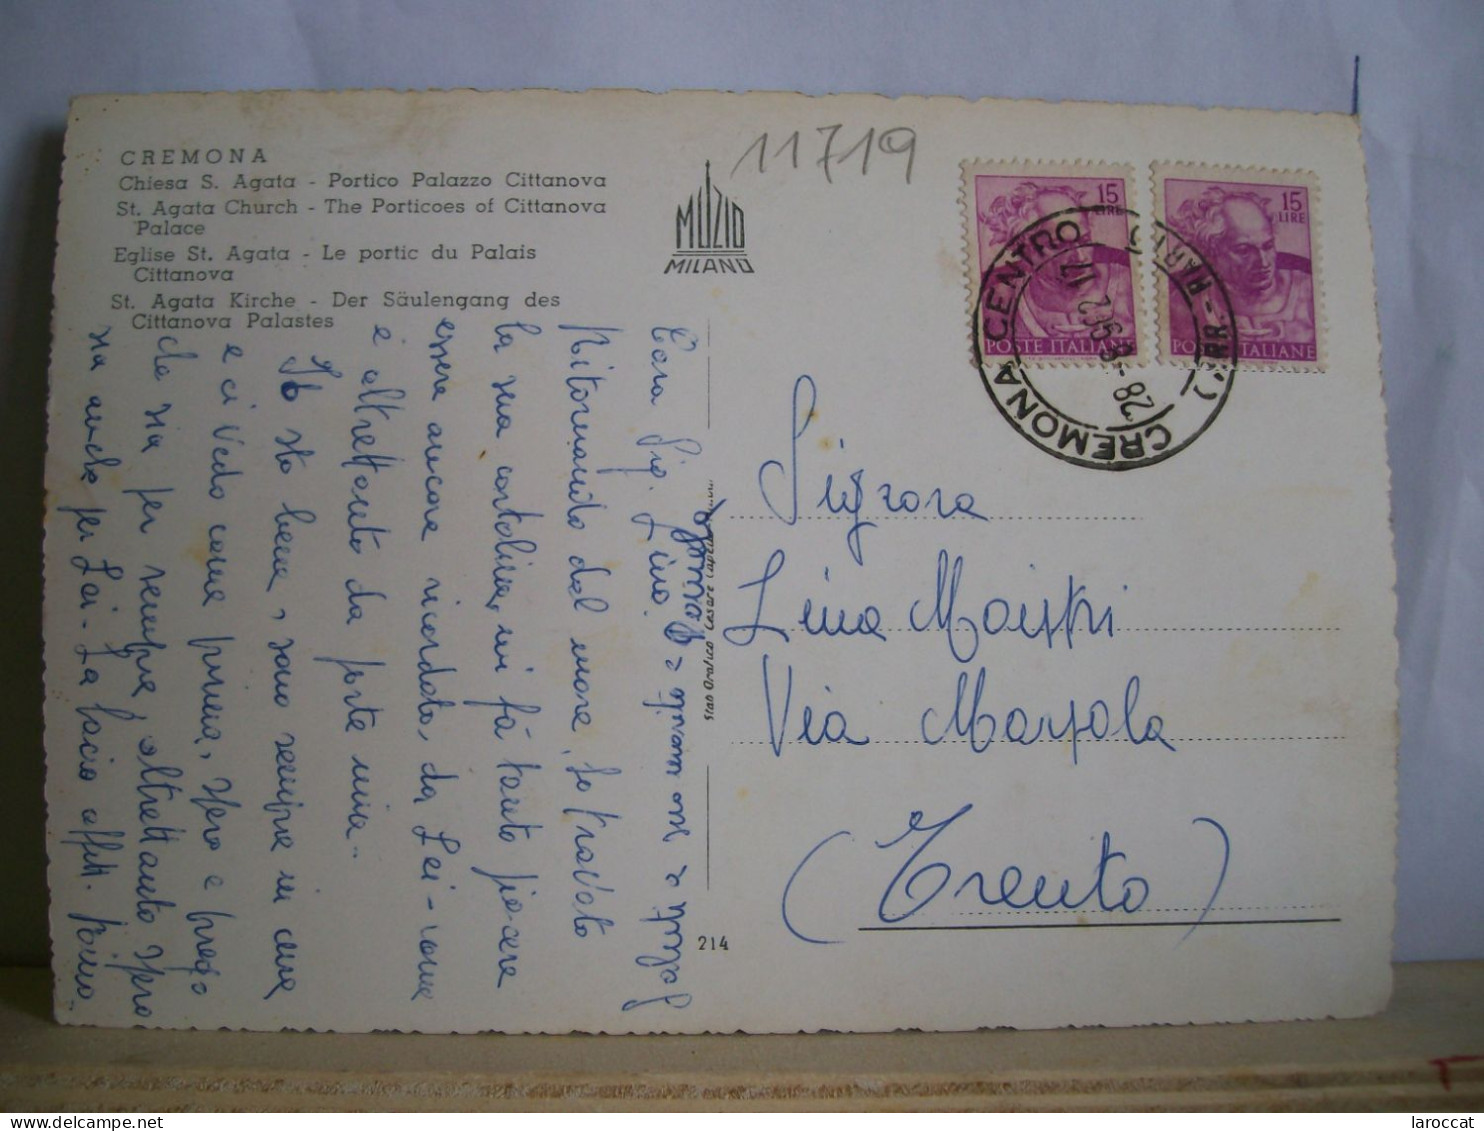 CREMONA
Chiesa S. Agata - Portico Palazzo Cittanova
St. Agata Church - The Porticoes of Cittanova
Palace
Eglise St. Agata - Le portic du Palais
Cittanova
St. Agata Kirche - Der Säulengang des
Cittanova Palastes
MUZIO
MILANO
11719
15
LIRE
POSTE ITALIANE
15
LIRE
POSTE ITALIANE
CREMONA CENTRO
CREMONA
28-8-962 17
Cara Sig. Lina.
Ritornando dal mare, ho trovato
la sua cartolina, mi fà tanto piacere
essere ancora ricordata, da Lei - come
è altrettanto da parte mia -
Io sto bene, sono sempre in cura
e ci vedo come prima, spero e prego
che sia per sempre, altrettanto spero
sia anche per Lei - La bacio aff.
Signora
Lina
Via
(Trento)
Stab Grafico Cesare
214
laroccat